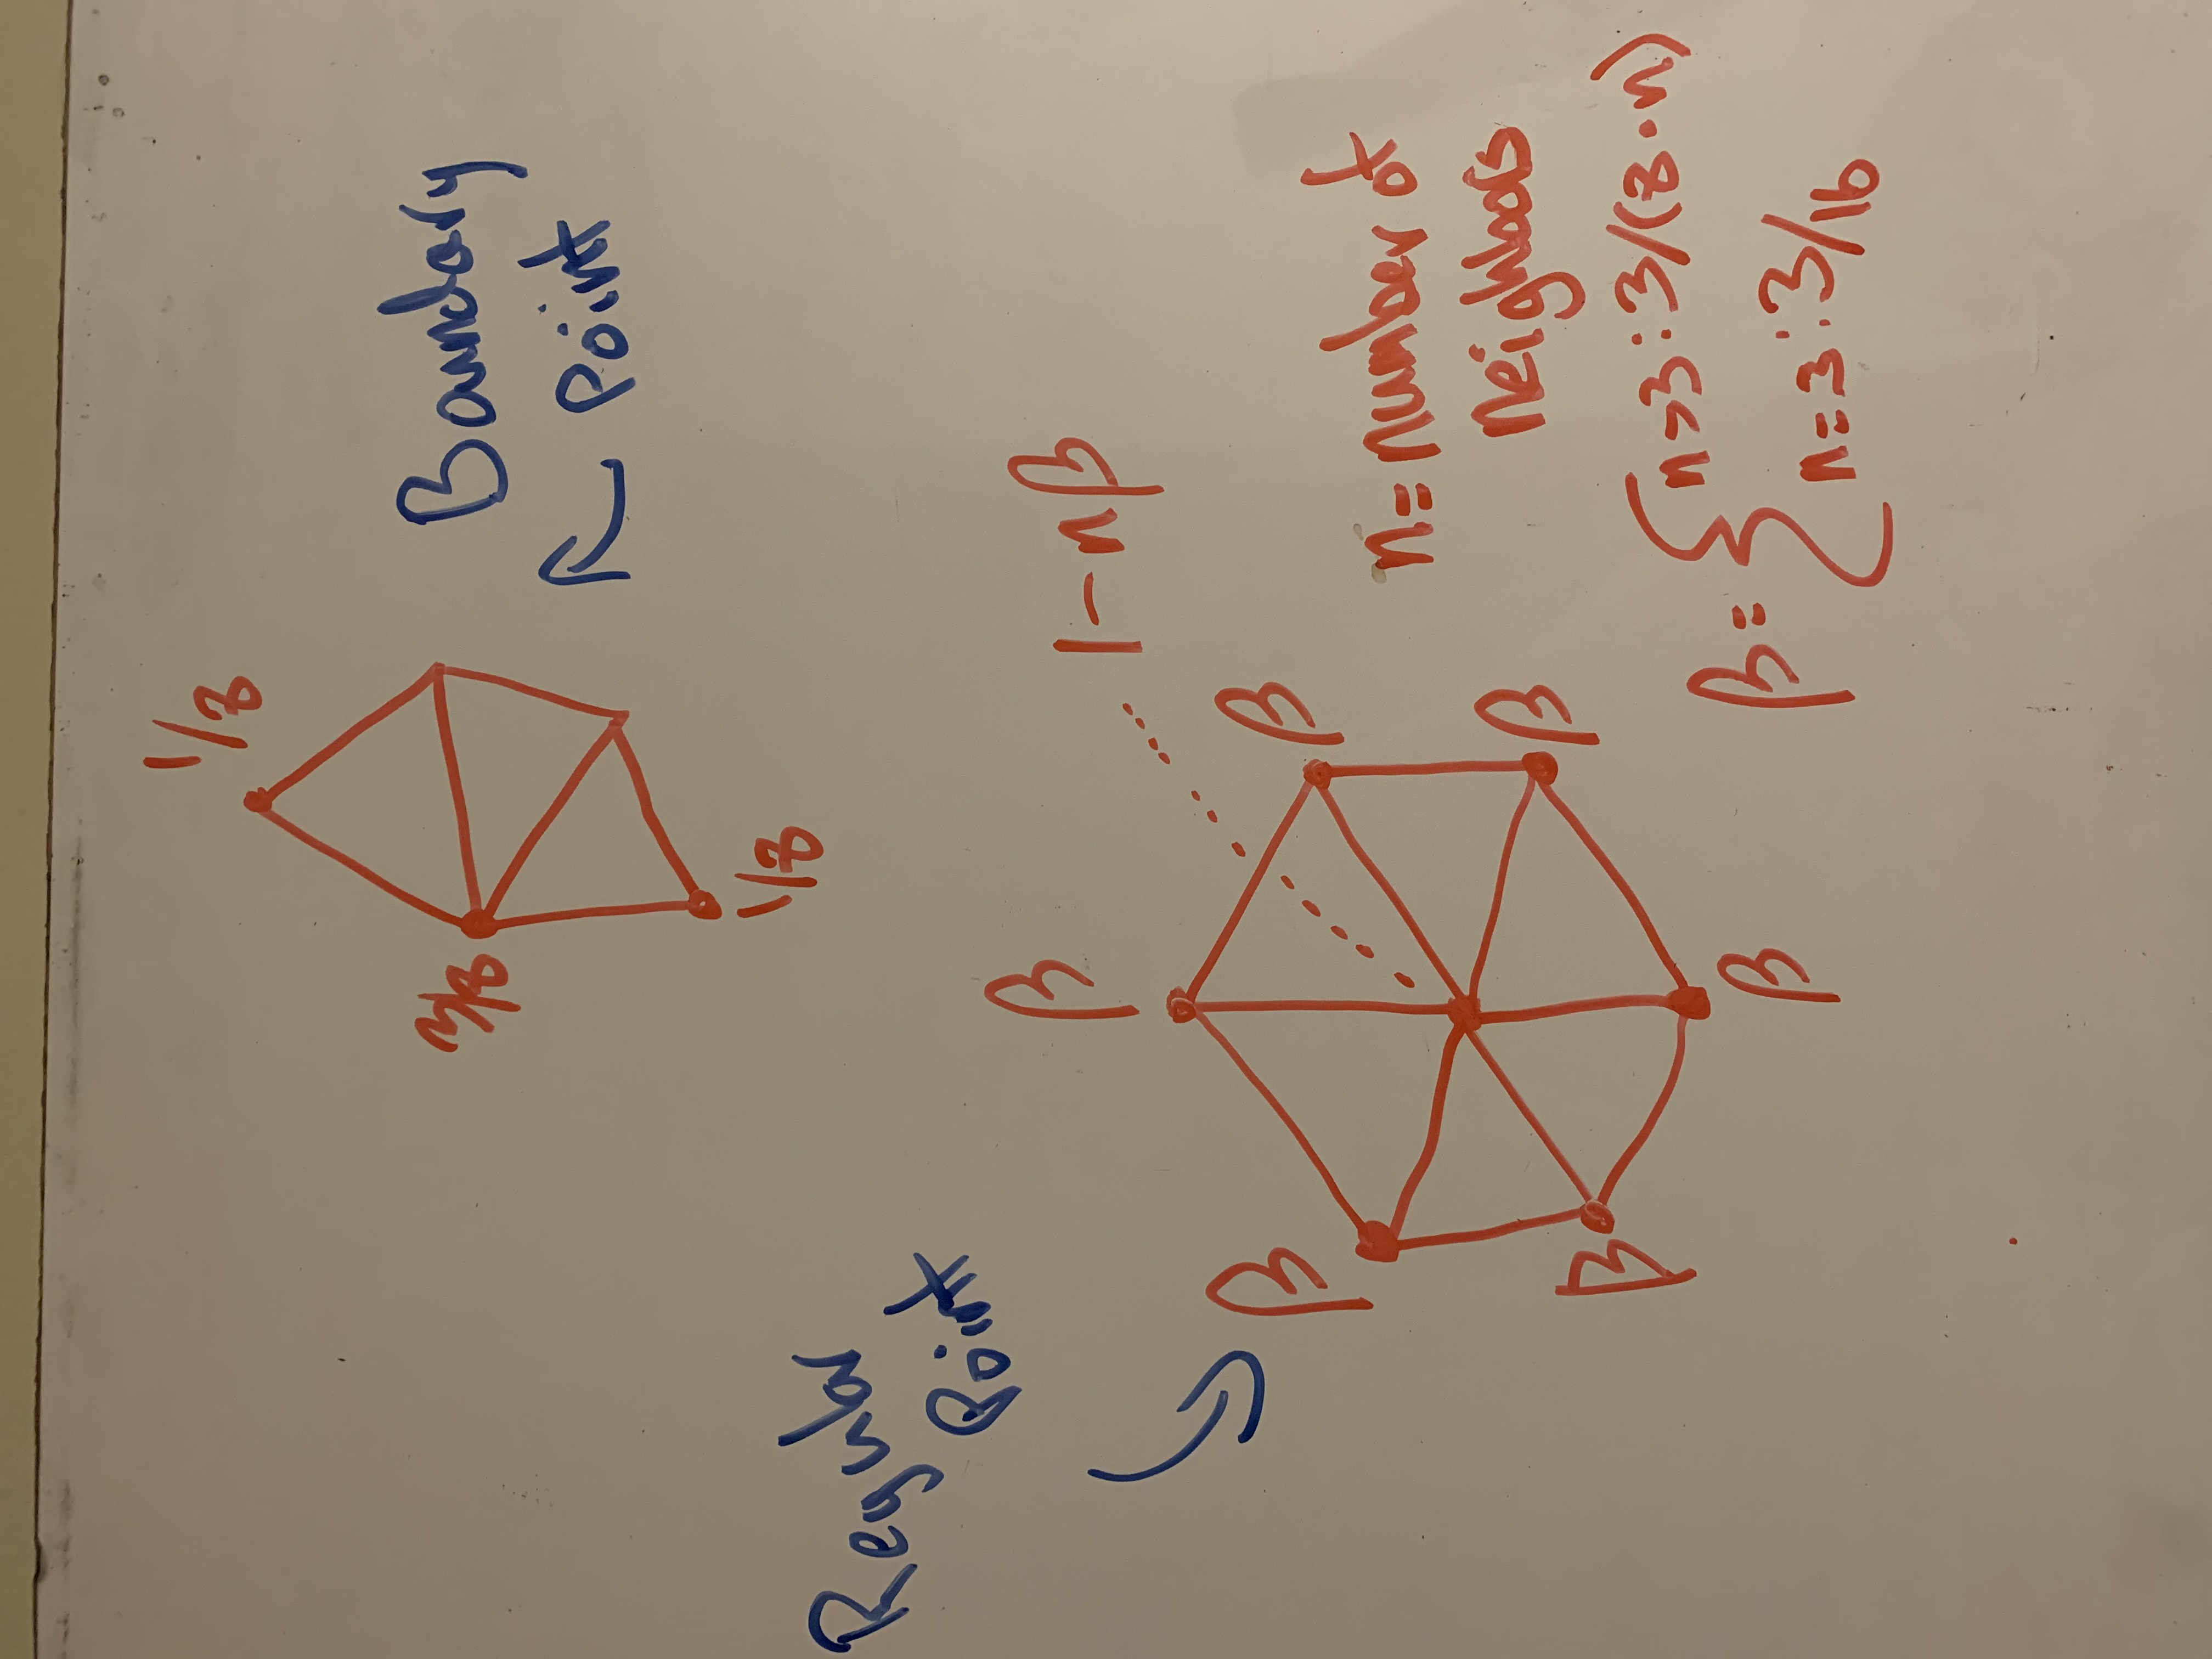 1/8
3/8
Boundary
Point
1/8
Regular
Point
β
1-nβ
β
β
n=number of
neighbors
β
β
β
β={n>3:3/(8·n)
n=3:3/16